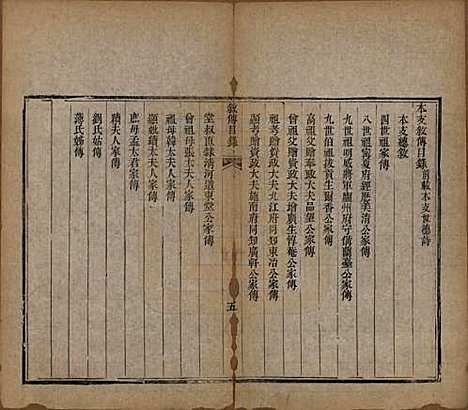 本支敘傳目錄前載本支世德詩
本支德敘
四世祖家傳
八世祖寧夏府經歷美清公家傳
九世祖明威將軍廬州府守備蘭臺公家傳
九世伯祖拔貢生爾香公家傳
高祖父贈奉政大夫品望公家傳
曾祖父贈資政大夫增廣生惇菴公家傳
祖考贈資政大夫九江府同知東冶公家傳
顯考贈資政大夫施南府同知廣軒公家傳
敘傳目錄
五
堂叔直隸清河道東堂公家傳
曾祖母張太夫人家傳
祖母韓太夫人家傳
顯妣續太夫人家傳
庶母孟太君家傳
續夫人家傳
劉氏姊傳
蔣氏姊傳